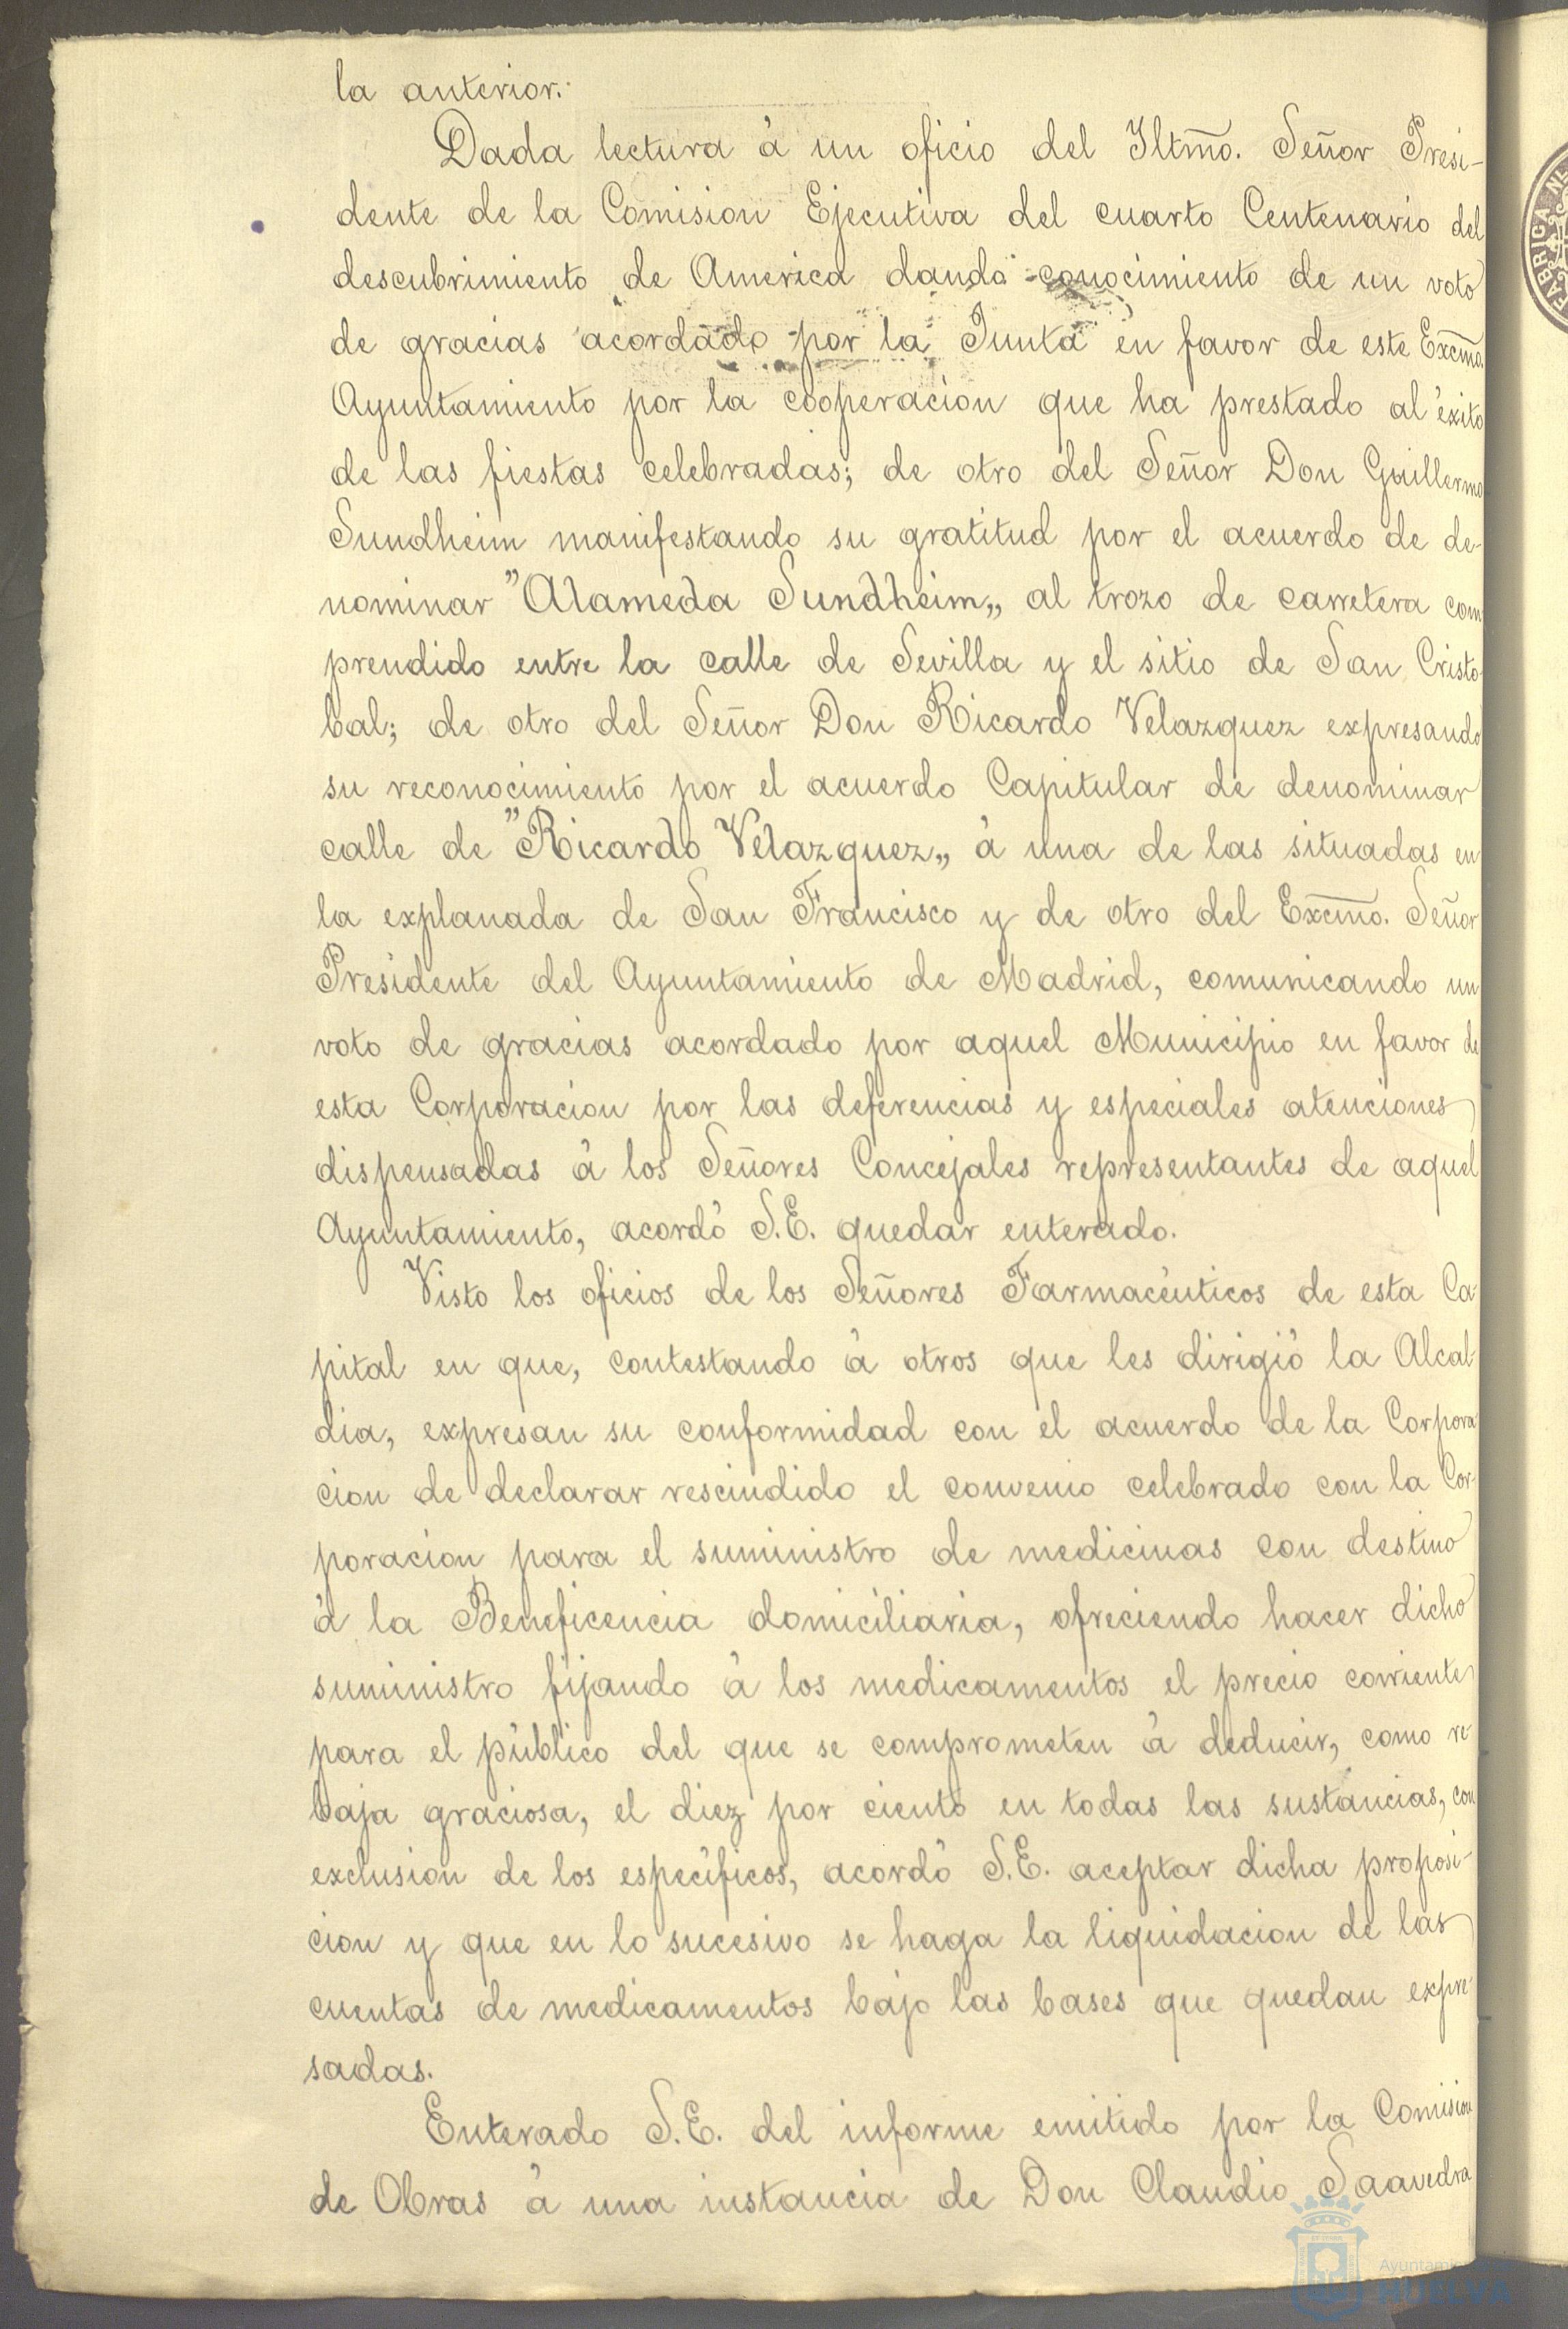 la anterior.
Dada lectura á un oficio del Iltmo. Señor Presi-
dente de la Comision Ejecutiva del cuarto Centenario del
descubrimiento de America dando conocimiento de un voto
de gracias acordado por la Junta en favor de este Excmo.
Ayuntamiento por la cooperacion que ha prestado al éxito
de las fiestas celebradas; de otro del Señor Don Guillermo
Sundheim manifestando su gratitud por el acuerdo de de-
nominar "Alameda Sundheim„ al trozo de carretera com
prendido entre la calle de Sevilla y el sitio de San Cristo-
bal; de otro del Señor Don Ricardo Velazquez expresando
su reconocimiento por el acuerdo Capitular de denominar
calle de "Ricardo Velazquez„ á una de las situadas en
la explanada de San Francisco y de otro del Excmo. Señor
Presidente del Ayuntamiento de Madrid, comunicando un
voto de gracias acordado por aquel Municipio en favor de
esta Corporacion por las deferencias y especiales atenciones
dispensadas á los Señores Concejales representantes de aquel
Ayuntamiento, acordó S.E. quedar enterado.
Visto los oficios de los Señores Farmacéuticos de esta Ca-
pital en que, contestando á otros que les dirigió la Alcal-
dia, expresan su conformidad con el acuerdo de la Corpora
cion de declarar rescindido el convenio celebrado con la Cor-
poracion para el suministro de medicinas con destino
á la Beneficencia domiciliaria, ofreciendo hacer dicho
suministro fijando á los medicamentos el precio corriente
para el público del que se comprometen á deducir, como re-
baja graciosa, el diez por ciento en todas las sustancias, con
exclusion de los específicos, acordó S.E. aceptar dicha proposi-
cion y que en lo sucesivo se haga la liquidacion de las
cuentas de medicamentos bajo las bases que quedan expre-
sadas.
Enterado S.E. del informe emitido por la Comision
de Obras á una instancia de Don Claudio Saavedra
HUELVA